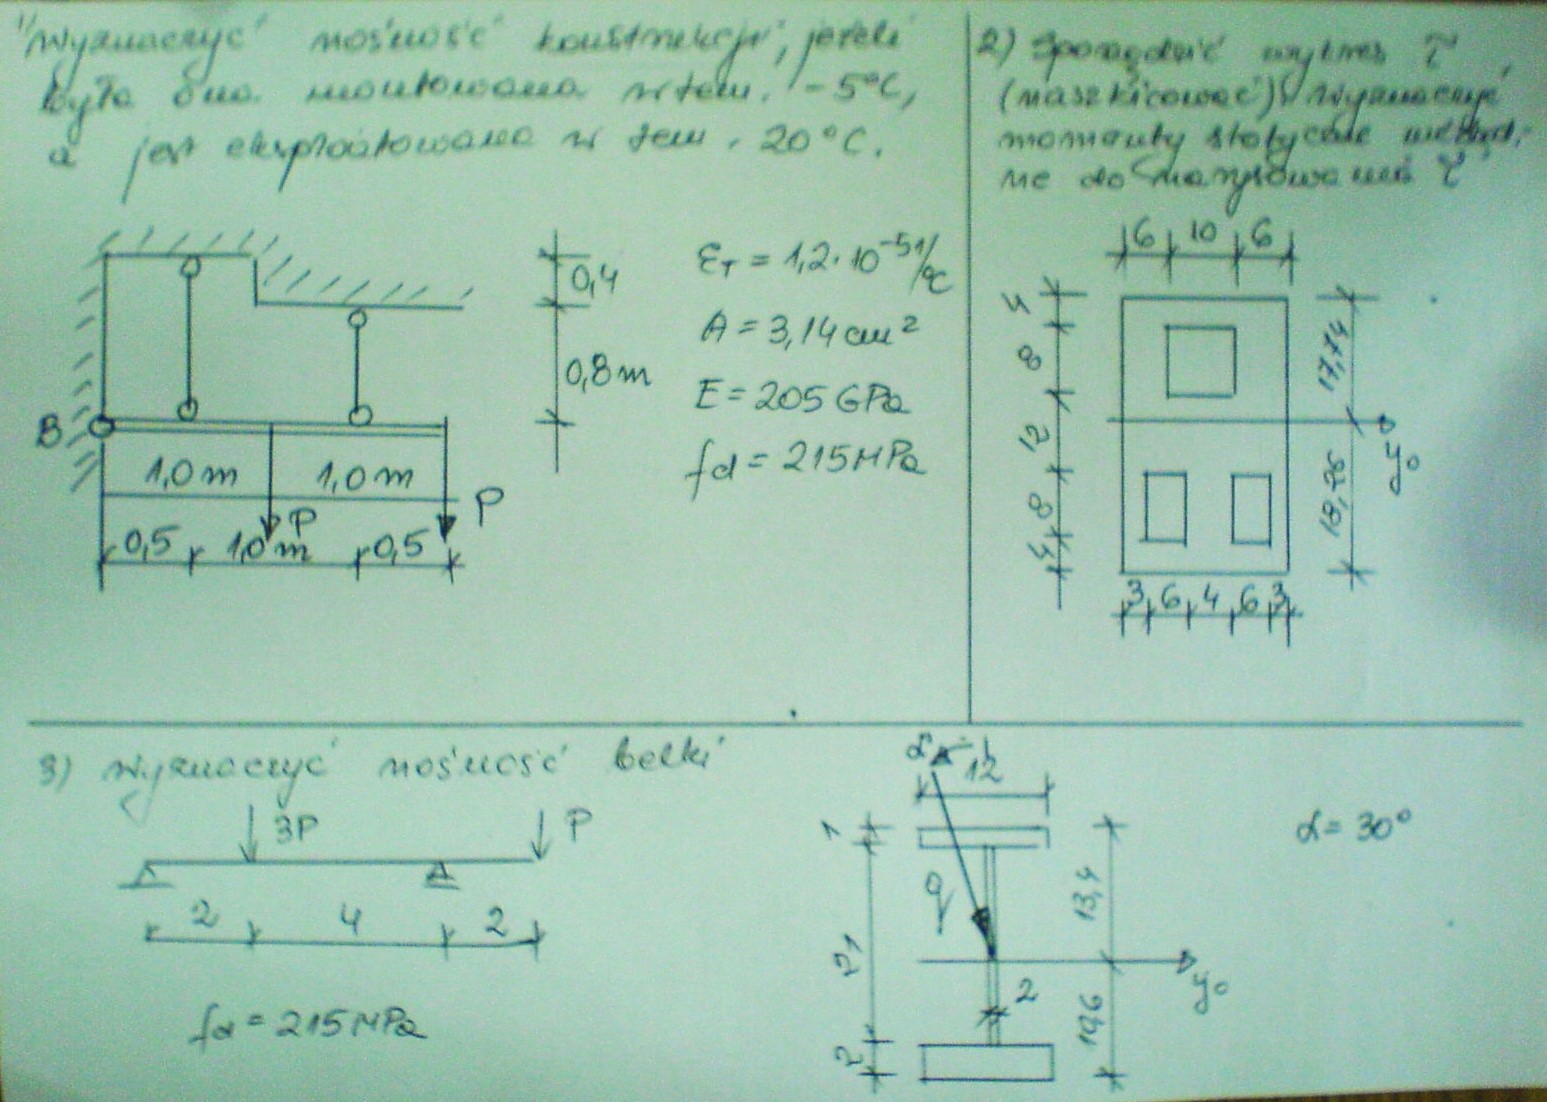 1) Wyznaczyć nośność konstrukcji, jeżeli
była ona montowana w tem. -5°C,
a jest eksploatowana w tem. 20°C.
0,4
0,8m
B
1,0 m
1,0 m
P
P
0,5
1,0 m
0,5
ε_T = 1,2·10⁻⁵ 1/°C
A = 3,14 cm²
E = 205 GPa
fd = 215 MPa
2) Sporządzić wykres τ
(naszkicować). Wyznaczyć
momenty statyczne
ne do narysowania τ
6
10
6
4
8
12
8
4
17,74
18,26
y₀
3
6
4
6
3
3) Wyznaczyć nośność belki
3P
P
2
4
2
fd = 215 MPa
α
12
1
q
21
2
2
13,4
y₀
α = 30°